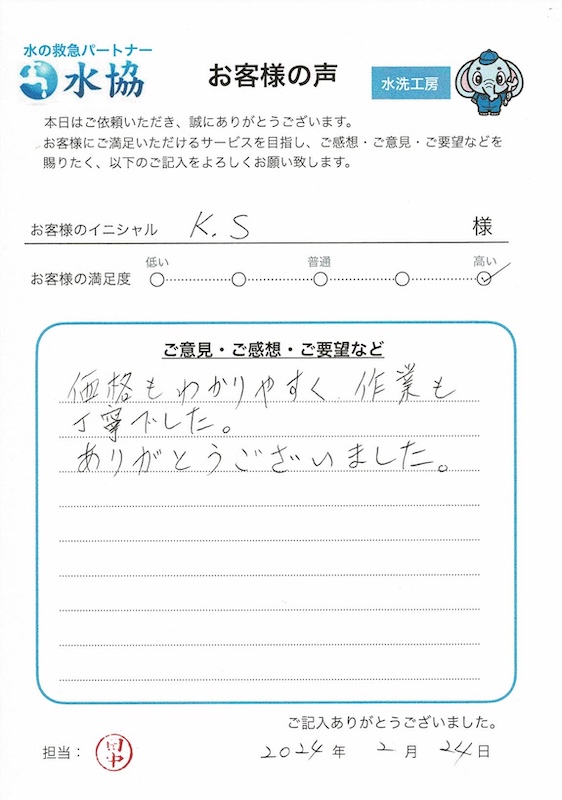 水の救急パートナー
水協
お客様の声
水洗工房
本日はご依頼いただき、誠にありがとうございます。
お客様にご満足いただけるサービスを目指し、ご感想・ご意見・ご要望などを
賜りたく、以下のご記入をよろしくお願い致します。
お客様のイニシャル K.S 様
低い 普通 高い
お客様の満足度
ご意見・ご感想・ご要望など
価格もわかりやすく、作業も
丁寧でした。
ありがとうございました。
ご記入ありがとうございました。
担当： 田中 2024年 2月 24日